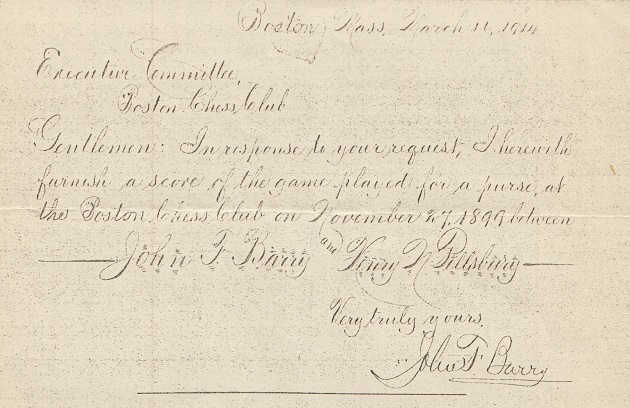 Boston Mass, March 11, 1914
Executive Committee,
Boston Chess Club
Gentlemen: In response to your request, I herewith
furnish a score of the game played for a purse, at
the Boston Chess Club on November 27, 1899 between
John F Barry and Henry N Pillsbury
Very truly yours,
John F Barry